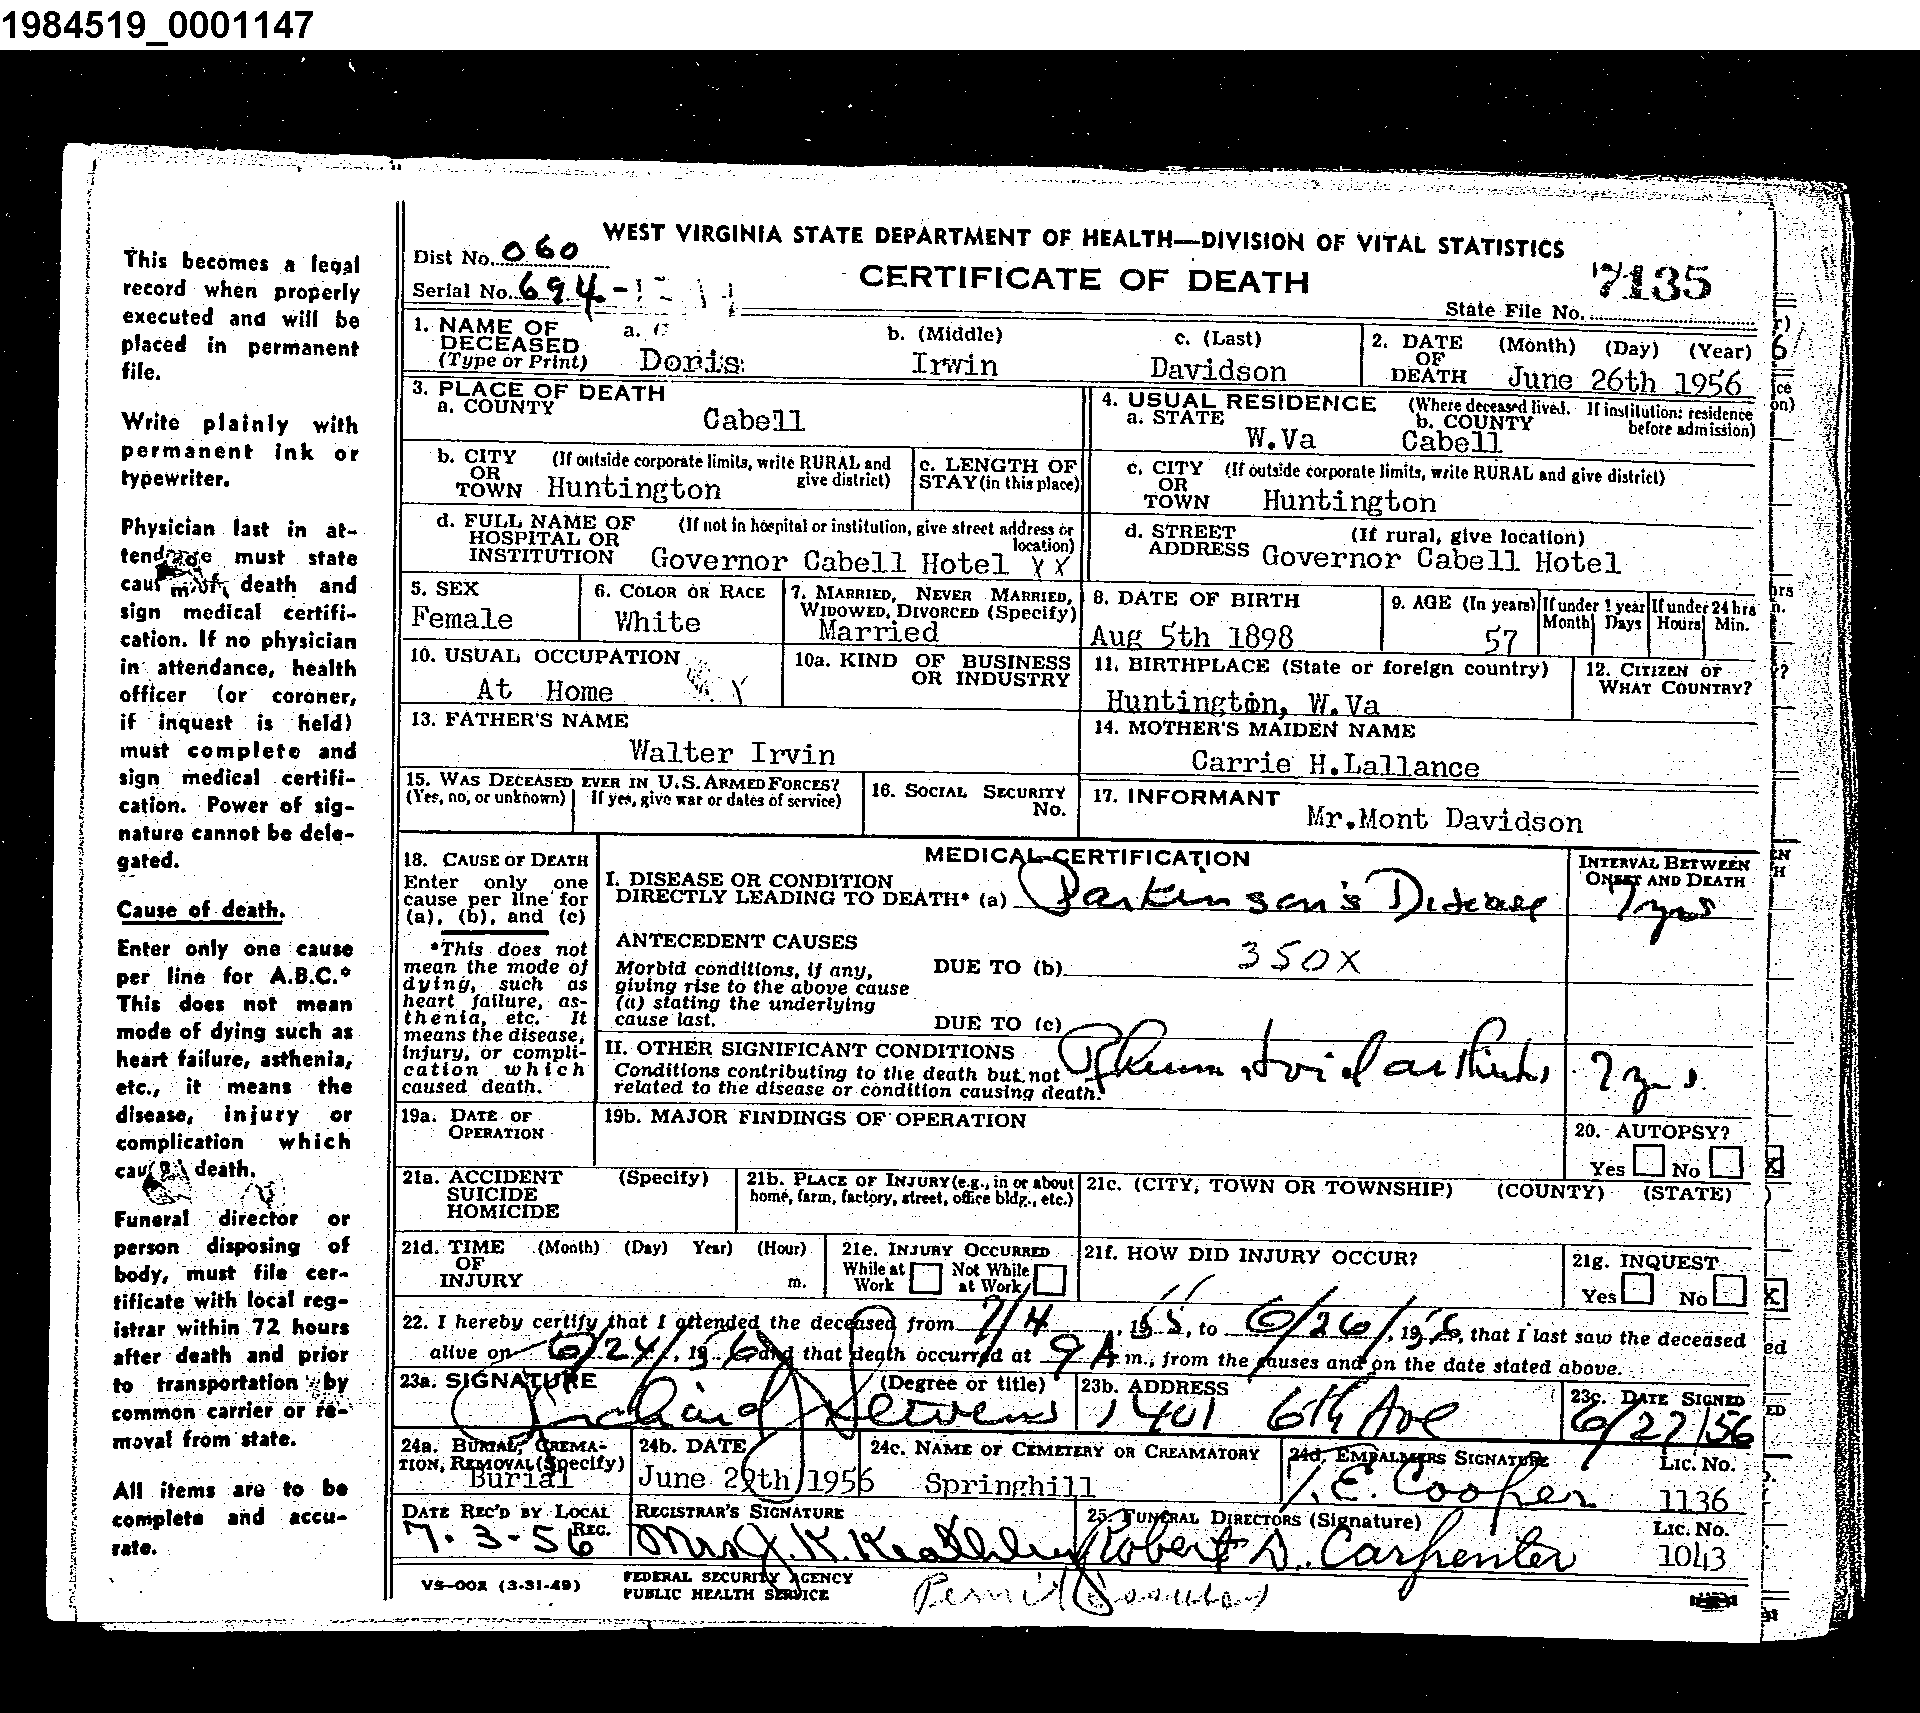 1984519_0001147
This becomes a legal
record when properly
executed and will be
placed in permanent
file.
Write plainly with
permanent ink or
typewriter.
Physician last in at-
tendance must state
cause of death and
sign medical certifi-
cation. If no physician
in attendance, health
officer (or coroner,
if inquest is held)
must complete and
sign medical certifi-
cation. Power of sig-
nature cannot be dele-
gated.
Cause of death.
Enter only one cause
per line for A.B.C.*
This does not mean
mode of dying such as
heart failure, asthenia,
etc., it means the
disease, injury or
complication which
death.
Funeral director or
person disposing of
body, must file cer-
tificate with local reg-
istrar within 72 hours
after death and prior
to transportation by
common carrier or re-
moval from state.
All items are to be
complete and accu-
rate.
WEST VIRGINIA STATE DEPARTMENT OF HEALTH—DIVISION OF VITAL STATISTICS
Dist No. 060
CERTIFICATE OF DEATH
Serial No. 694-
State File No. 7135
1. NAME OF DECEASED (Type or Print) a. Doris b. (Middle) Irwin c. (Last) Davidson
2. DATE OF DEATH (Month) (Day) (Year) June 26th 1956
3. PLACE OF DEATH
a. COUNTY Cabell
4. USUAL RESIDENCE (Where deceased lived. If institution: residence before admission)
a. STATE W.Va b. COUNTY Cabell
b. CITY OR TOWN (If outside corporate limits, write RURAL and give district) Huntington
c. LENGTH OF STAY (in this place)
c. CITY OR TOWN (If outside corporate limits, write RURAL and give district) Huntington
d. FULL NAME OF HOSPITAL OR INSTITUTION (If not in hospital or institution, give street address or location) Governor Cabell Hotel YX
d. STREET ADDRESS (If rural, give location) Governor Cabell Hotel
5. SEX Female
6. COLOR OR RACE White
7. MARRIED, NEVER MARRIED, WIDOWED, DIVORCED (Specify) Married
8. DATE OF BIRTH Aug 5th 1898
9. AGE (In years) 57 If under 1 year Month Days If under 24 hrs Hours Min.
10. USUAL OCCUPATION At Home
10a. KIND OF BUSINESS OR INDUSTRY
11. BIRTHPLACE (State or foreign country) Huntington, W.Va
12. CITIZEN OF WHAT COUNTRY?
13. FATHER'S NAME Walter Irvin
14. MOTHER'S MAIDEN NAME Carrie H.Lallance
15. WAS DECEASED EVER IN U.S. ARMED FORCES? (Yes, no, or unknown) If yes, give war or dates of service)
16. SOCIAL SECURITY No.
17. INFORMANT Mr.Mont Davidson
18. CAUSE OF DEATH
Enter only one cause per line for (a), (b), and (c)
*This does not mean the mode of dying, such as heart failure, asthenia, etc. It means the disease, injury, or complication which caused death.
MEDICAL CERTIFICATION
INTERVAL BETWEEN ONSET AND DEATH
I. DISEASE OR CONDITION DIRECTLY LEADING TO DEATH* (a) Parkinson's Disease 7 yrs
ANTECEDENT CAUSES
Morbid conditions, if any, giving rise to the above cause (a) stating the underlying cause last.
DUE TO (b) 350X
DUE TO (c)
II. OTHER SIGNIFICANT CONDITIONS
Conditions contributing to the death but not related to the disease or condition causing death. Rheumatoid arthritis 7 yrs.
19a. DATE OF OPERATION
19b. MAJOR FINDINGS OF OPERATION
20. AUTOPSY? Yes No
21a. ACCIDENT SUICIDE HOMICIDE (Specify)
21b. PLACE OF INJURY (e.g., in or about home, farm, factory, street, office bldg., etc.)
21c. (CITY, TOWN OR TOWNSHIP) (COUNTY) (STATE)
21d. TIME OF INJURY (Month) (Day) Year) (Hour) m.
21e. INJURY OCCURRED While at Work Not While at Work
21f. HOW DID INJURY OCCUR?
21g. INQUEST Yes No
22. I hereby certify that I attended the deceased from 7/4, 1955, to 6/26/, 1956, that I last saw the deceased
alive on 6/24/, 1956 and that death occurred at 9 A m., from the causes and on the date stated above.
23a. SIGNATURE (Degree or title) Richard Stevens
23b. ADDRESS 1401 6th Ave
23c. DATE SIGNED 6/27/56
24a. BURIAL, CREMATION, REMOVAL (Specify) Burial
24b. DATE June 29th 1956
24c. NAME OF CEMETERY OR CREAMATORY Springhill
24d. EMBALMERS SIGNATURE E. Cooper Lic. No. 1136
DATE REC'D BY LOCAL REG. 7-3-56
REGISTRAR'S SIGNATURE Mrs J. K. Keathley
25. FUNERAL DIRECTORS (Signature) Robert D. Carpenter Lic. No. 1043
VS-002 (3-31-49)
FEDERAL SECURITY AGENCY
PUBLIC HEALTH SERVICE